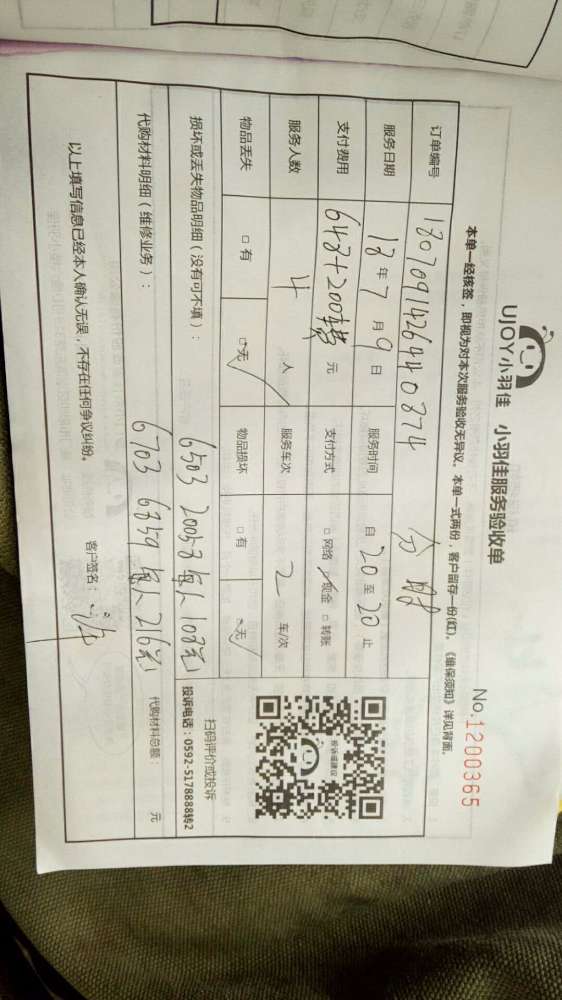 UJOY小羽佳 小羽佳服务验收单
No.1200365
本单一经核签，即视为对本次服务验收无异议。本单一式两份，客户留存一份(红)。《维保须知》详见背面。
订单编号 1807091426440874
服务日期 18年7月9日 服务时间 自20至20止
支付费用 648+200 元 支付方式 □网络 现金 □转账
服务人数 4 人 服务车次 2 车/次
物品丢失 □有 □无 物品损坏 □有 □无
损坏或丢失物品明细（没有可不填）：
6503 20057 每人108元
代购材料明细（维修业务）：
6703 6759 每人216元
代购材料总额： 元
投诉或建议
扫码评价或投诉
投诉电话：0592-5178888转2
以上填写信息已经本人确认无误，不存在任何争议纠纷。 客户签名：